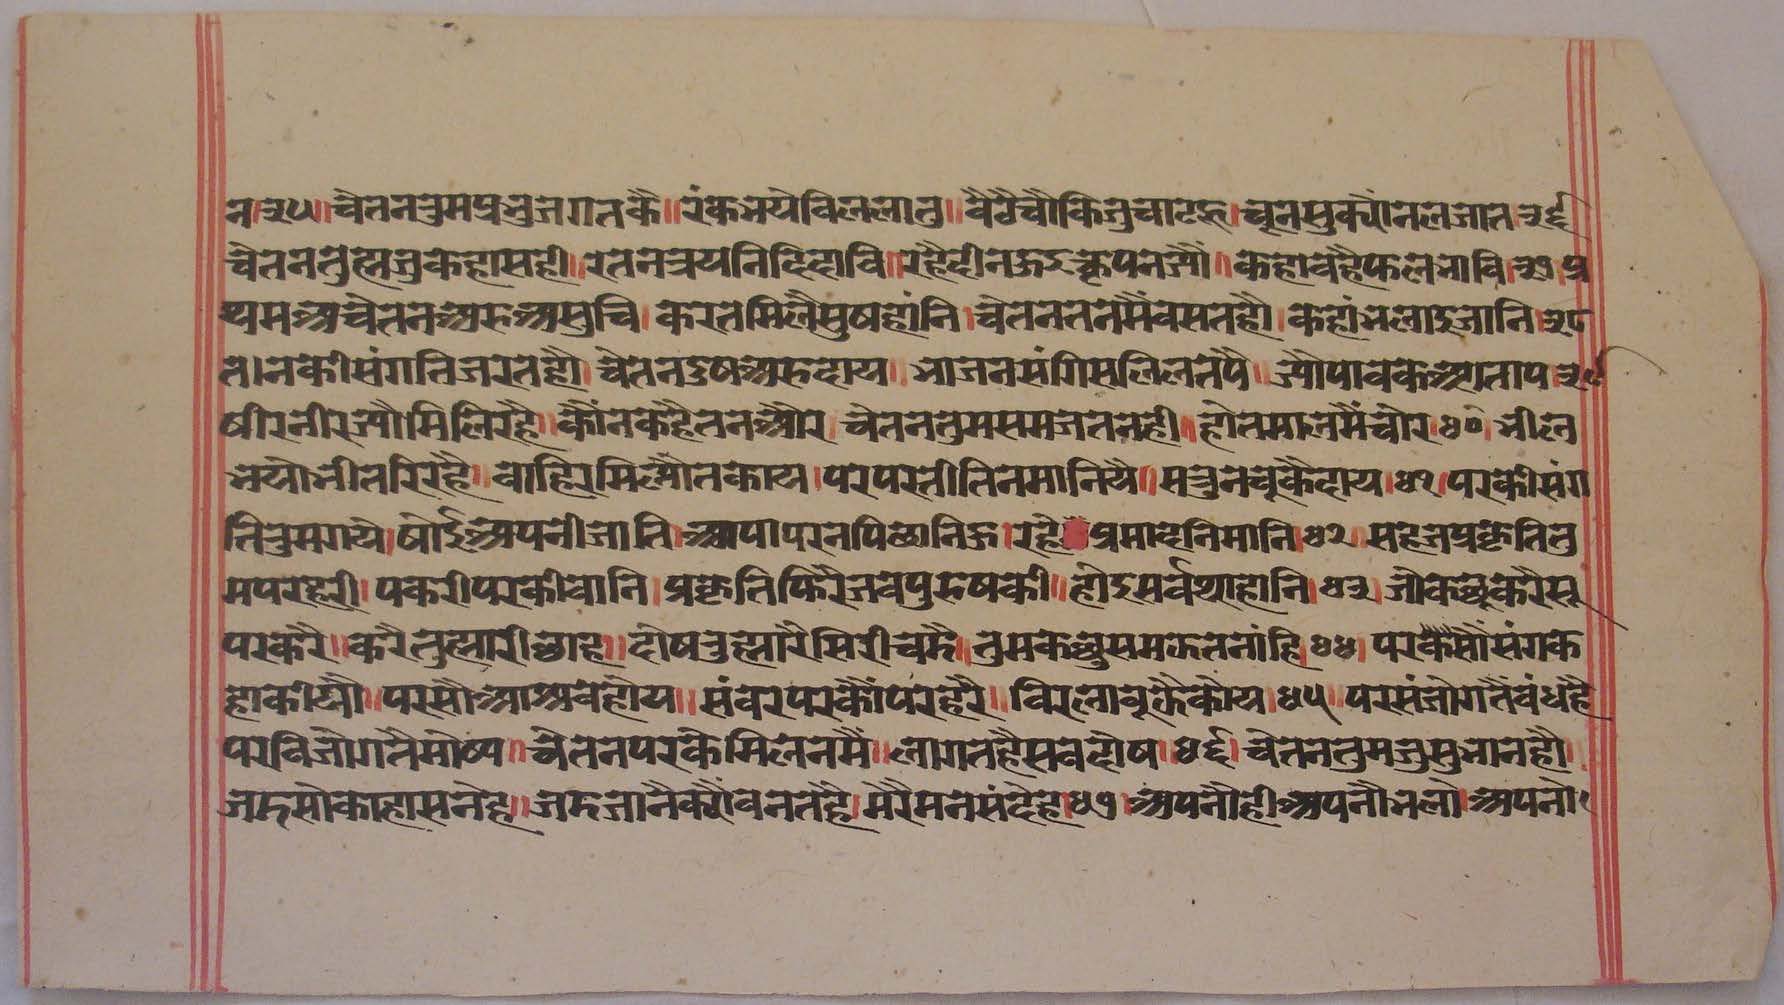 न ३५॥ चेतन तुम प्रभु जगत के॥ रंक भये विललातु॥ वैठे चौकि जु चाटहू। चून सु क्यौं न लजात ३६
चेतन तुह्म जु कहा सही॥ रतनत्रय निधि दावि॥ रहै दीन ऊइ कृपन ज्यौं॥ कहा वहै फल भावि ३७ प्र
थम अचेतन अरु असुचि। करत मिलै सुष हांनि। चेतन तन मैं वसत हौ। कहां भलाइ जानि ३८
त। न की संगति जरत हौ। चेतन दुष अरु दाय॥ भाजन संगि सलिल तपै॥ ज्यौ पावक आताप ३९
षीर नीर ज्यौ मिलि रहै॥ कौंन कहै तन और। चेतन तुम समजत नही॥ होत माल मैं चोर ४०। भीत
भयो भीतरि रहै। वाहिर मिल्यौ न काय। पर परतीति न मानियै॥ सत्रु न चूकै दाय। ४१। पर की संग
ति तुम गये। षोई अपनी जाति। आपा पर न पिछानि ऊ। रहे प्रमादनि मानि। ४२। सहज प्रकृति तु
म परहरी। पकरी पर की वानि। प्रकृति फिरै जव पुरुष की॥ होइ सर्वथा हानि। ४३ जौ कछू करै सू
पर करै॥ करै तुह्मारी छाह॥ दोष तुह्मारै सिरी चढै। तुम कछु समऊत नांहि। ४४। पर कैसौं संग के
हा कीयौ। पर सौ आश्रव होय॥ संवर पर कौं परहरै॥ विरला वूऊै कोय। ४५॥ पर संजोग तैं वंध है
पर विजोग तै मोष्य॥ चेतन पर कै मिलन मैं॥ लागत है सव दोष। ४६। चेतन तुम जु सुजान हौ
जड सो काहा सनेह॥ जड जानै क्यौं वनत है। मेरै मन संदेह। ४७। अपनौ ही अपनौ भलो। अपनो